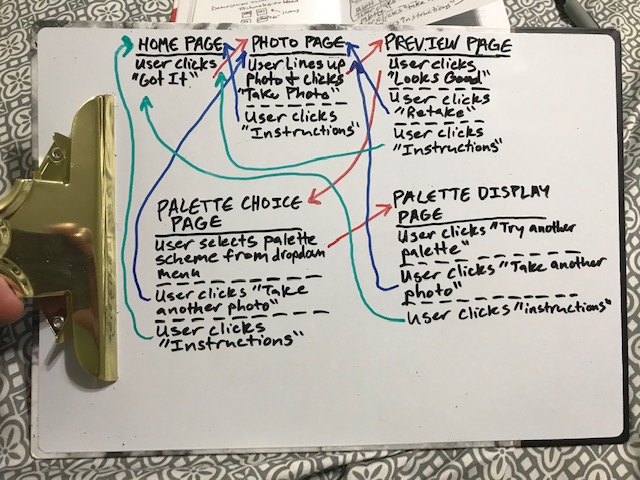 HOME PAGE
User clicks
"Got It"
PHOTO PAGE
User lines up
photo + clicks
"Take Photo"
User clicks
"Instructions"
PREVIEW PAGE
User clicks
"Looks Good"
User clicks
"Retake"
User clicks
"Instructions"
PALETTE CHOICE
PAGE
User selects palette
scheme from dropdown
menu
User clicks "Take
another photo"
User clicks
"Instructions"
PALETTE DISPLAY
PAGE
User clicks "Try another
palette"
User clicks "Take another
photo"
User clicks "instructions"